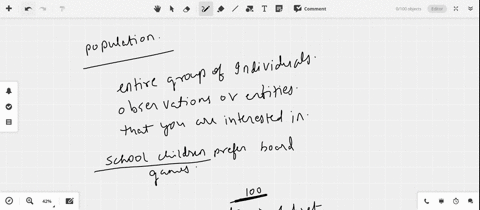 Comment
0/100 objects
Editor
population.
entire group of Individuals.
observations or entities.
that you are interested in.
school children prefer board
games.
100
42%